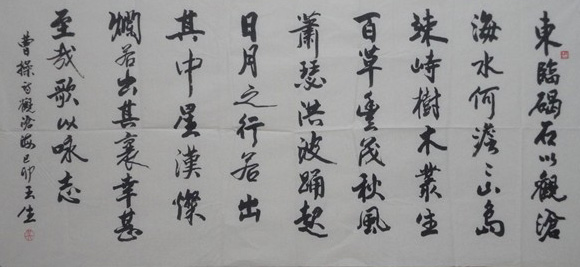 東臨碣石以觀滄
海水何澹々山島
竦峙樹木叢生
百草豐茂秋風
蕭瑟洪波踊起
日月之行若出
其中星漢燦
爛若出其裏幸甚
至哉歌以咏志
曹操詩觀滄海己卯王生